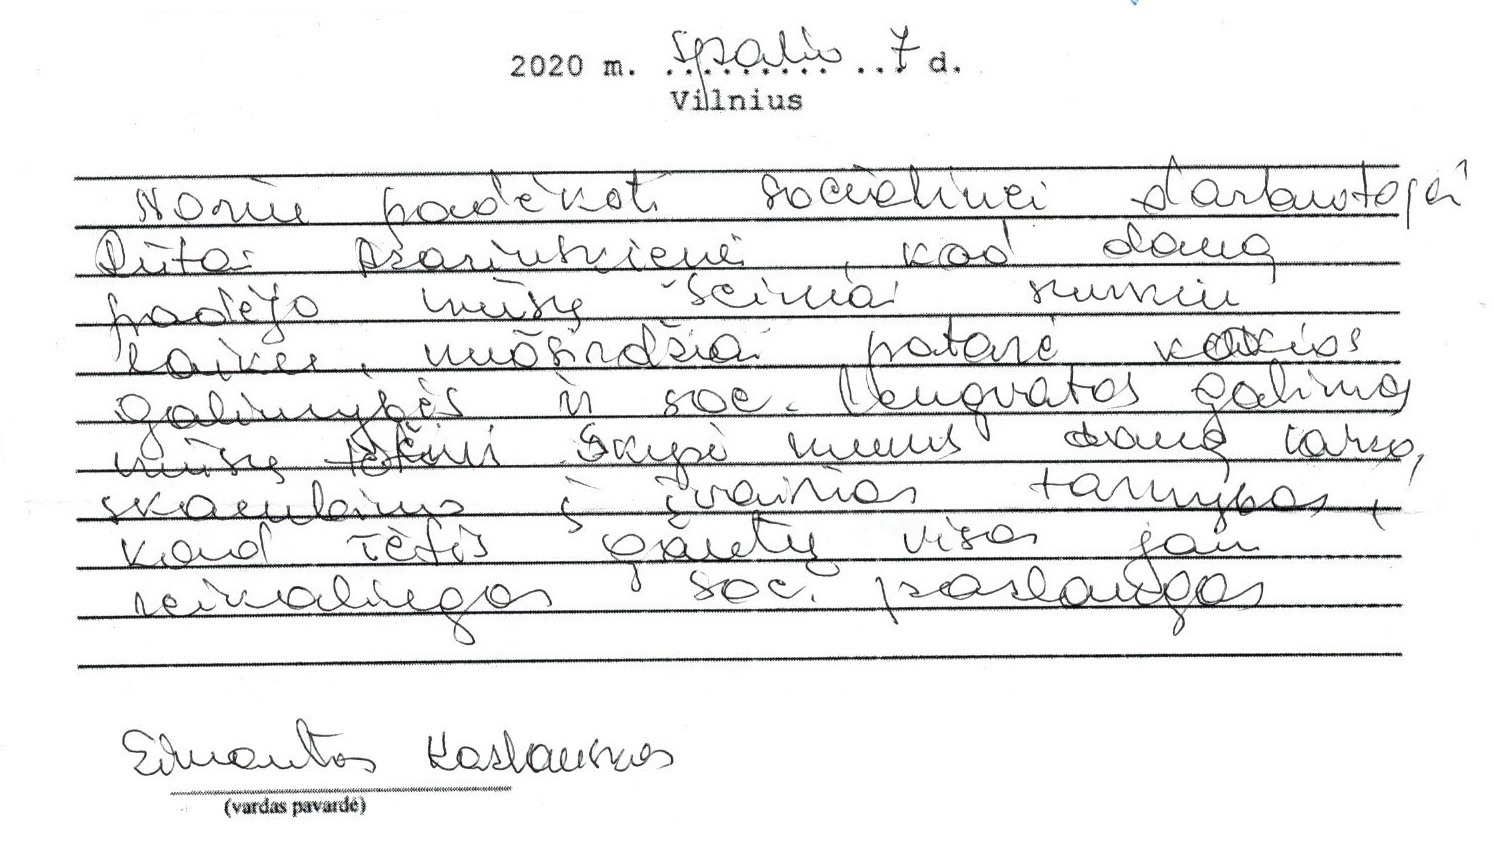 2020 m. Spalio 7 d.
Vilnius
Noriu padėkoti socialinei darbuotojai
Rūtai, kad daug
padėjo mūsų šeimai sunkiu
laiku, nuoširdžiai patarė kokios
galimybės ir soc. lengvatos galimos
mūsų tėčiui Skyrė mums daug laiko,
skambino į įvairias tarnybas,
kad tėtis gautų visas jam
reikalingas soc. paslaugas
Edmantas Kaslauskas
(vardas pavardė)